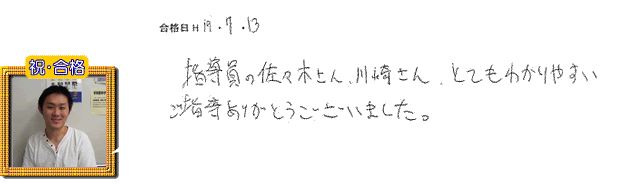 合格日 H 19.7.13
祝・合格
指導員の佐々木さん、川崎さん、とてもわかりやすい
ご指導ありがとうございました。